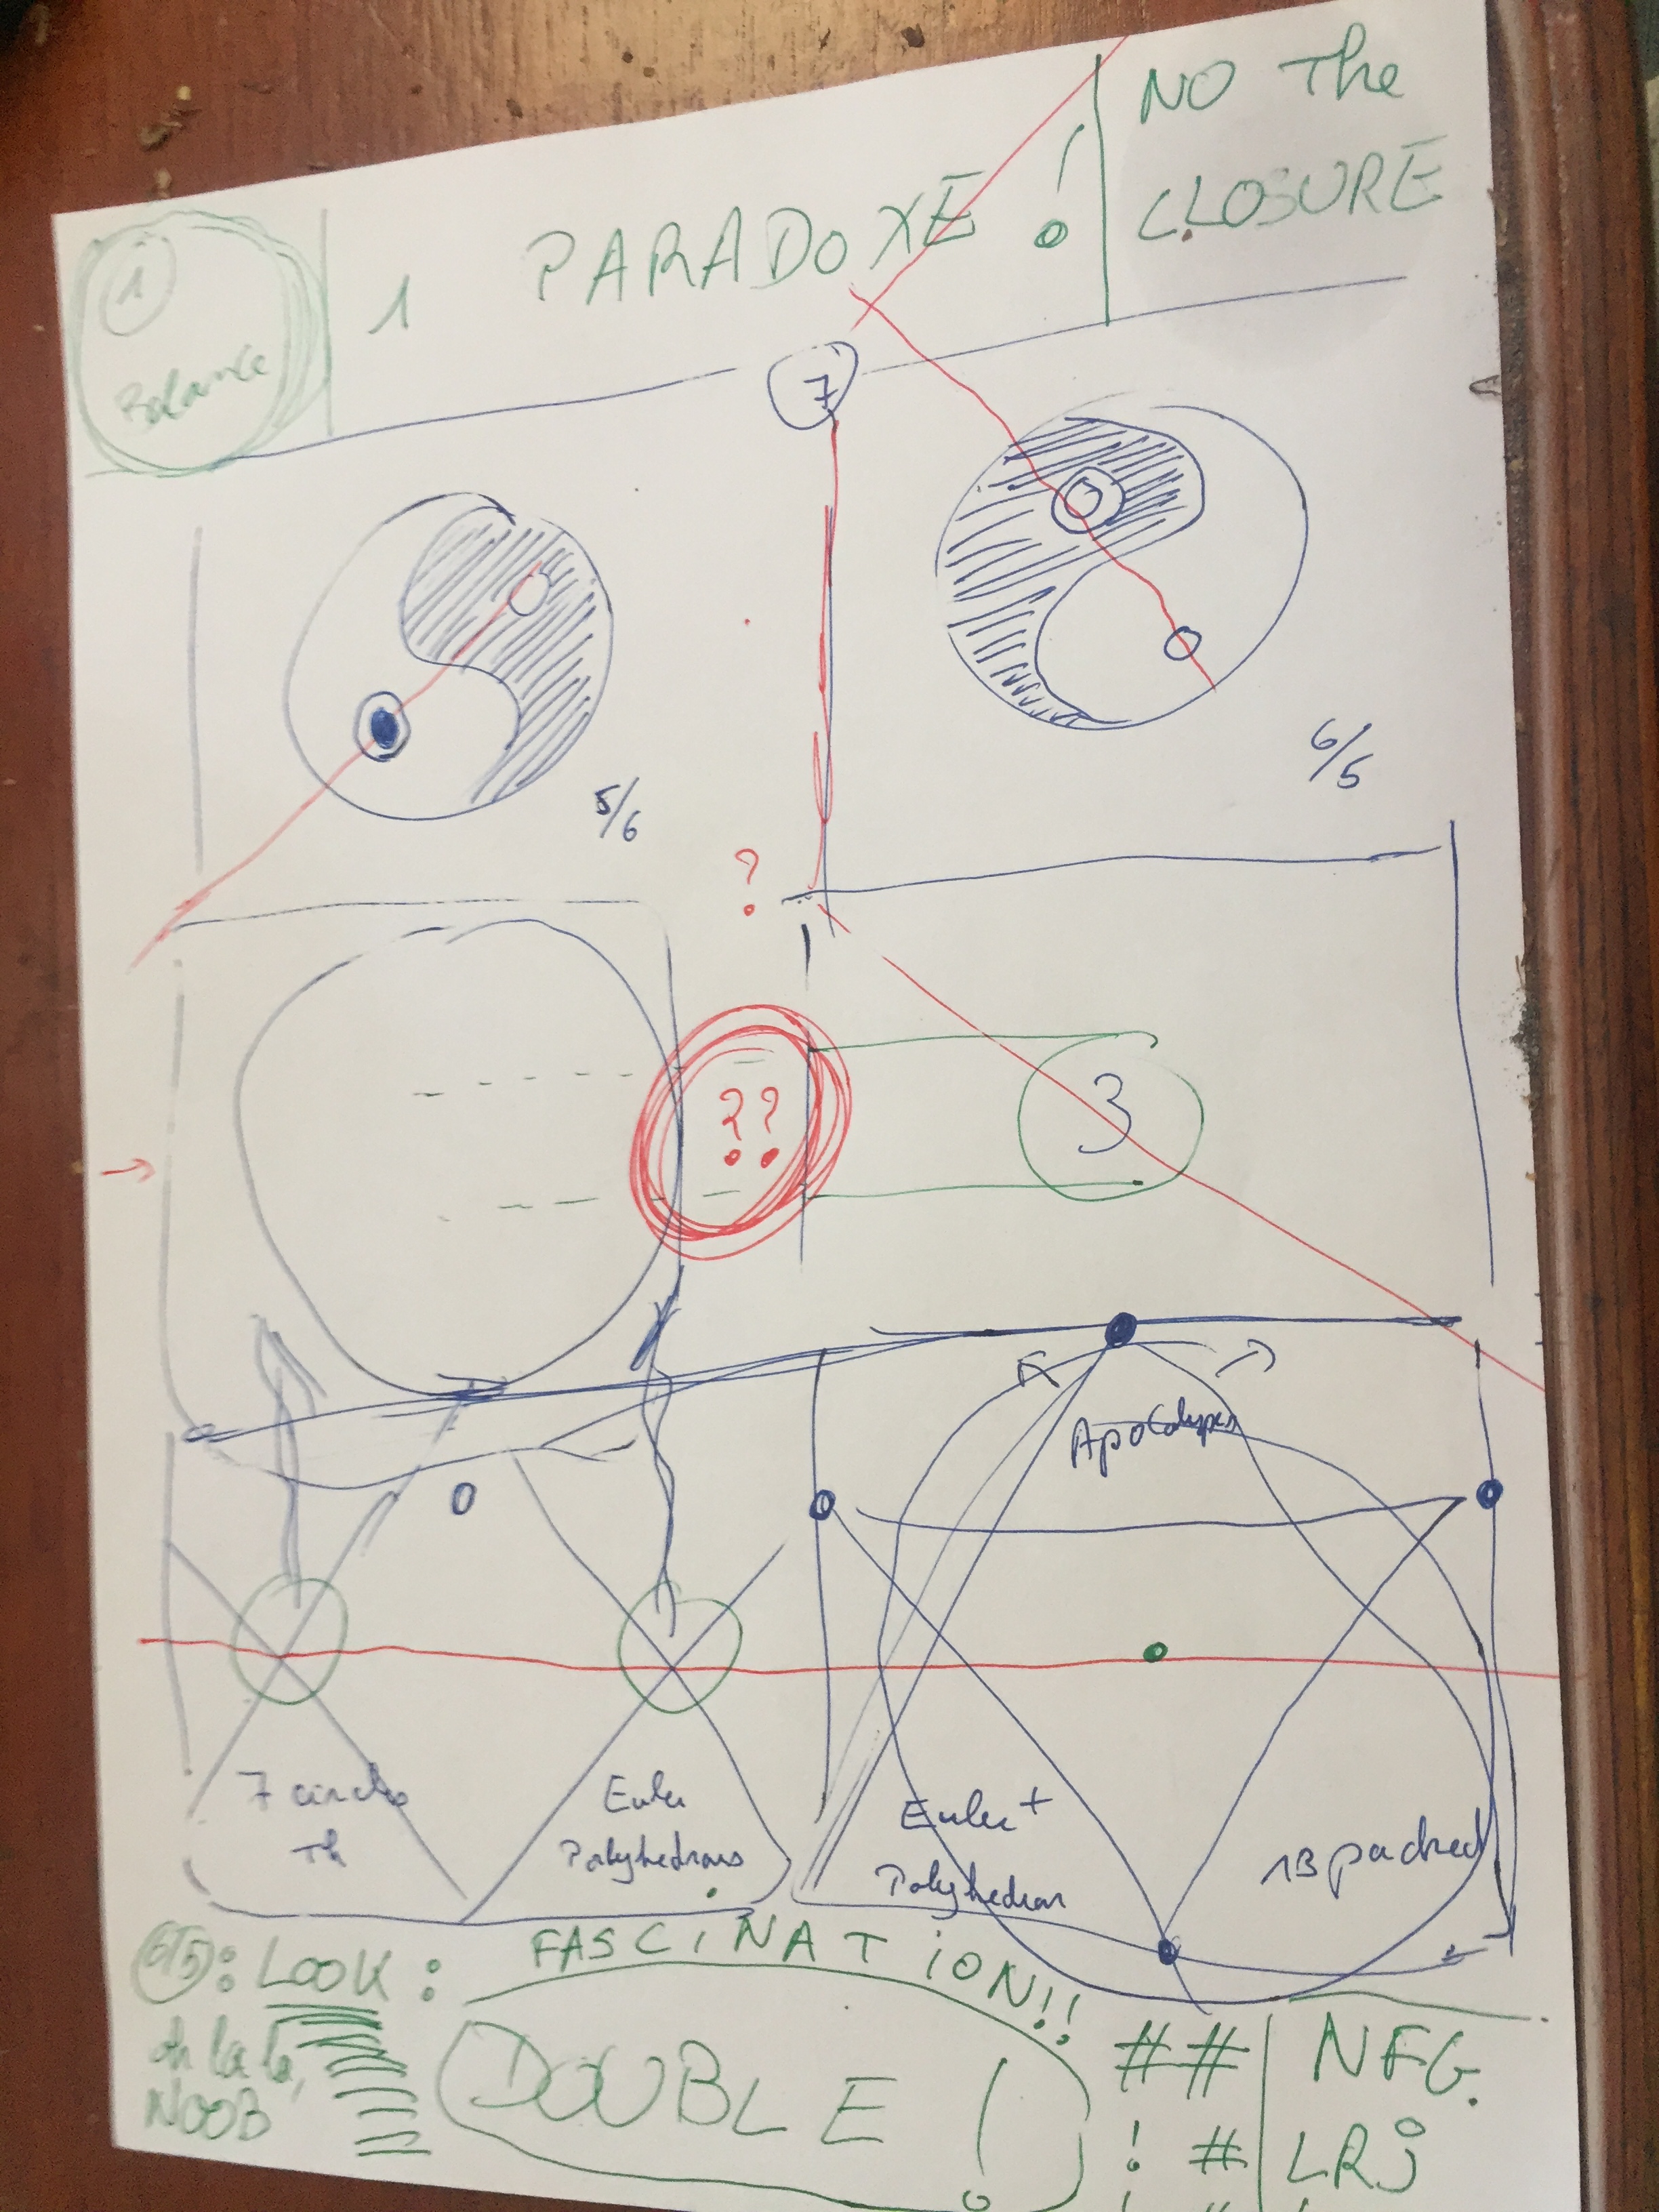 1
Balance
1 PARADOXE !
NO The
CLOSURE
7
5/6
6/5
?
??
3
Apocalypse
7 circles
Th
Euler
Polyhedrons
Euler +
Polyhedron
13 packed
: LOOK :
FASCINATION!!
oh la la,
NOOB
DOUBLE !
##
! #
NFG.
LRj